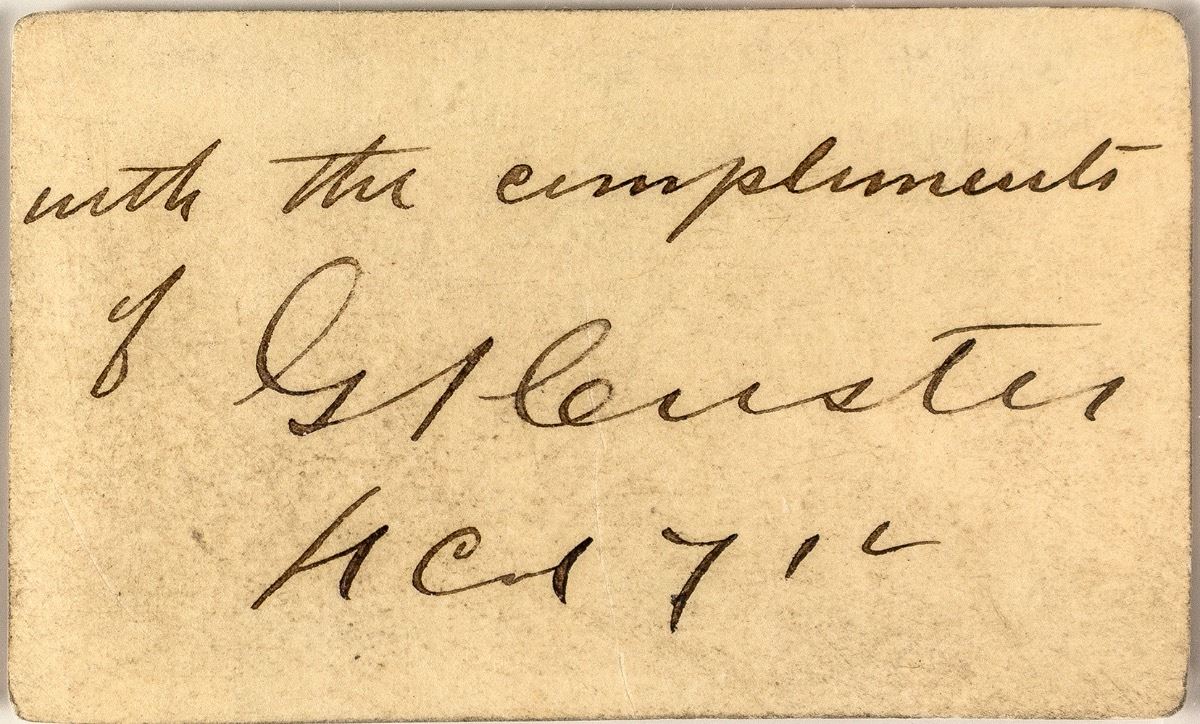 with the compliments
of GACuster
Lt Col 7